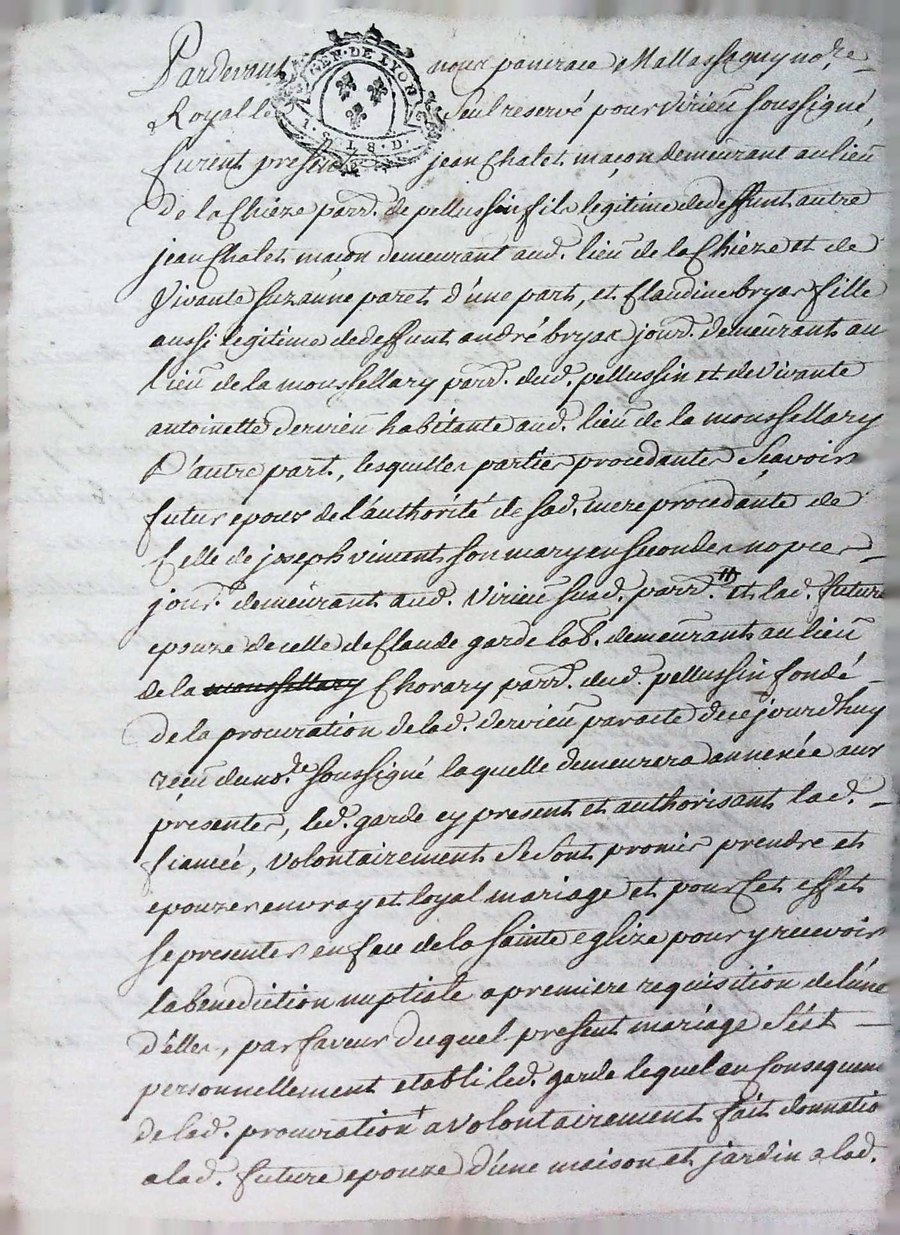 Pardevant nous pancrace Mallassagny no.re
Royalle Seul reservé pour Virieü soussigné,
GEN. DE LYON
1.S. 18 D.
furent presents jean Chalet maçon demeurant au lieü
de la Chièze parr. de pellussin fils legitime de deffunt autre
jean Chalet maçon demeurant aud. lieü de la Chièze et de
Vivante Suzanne paret d'une part, et Claudine bryas fille
aussi legitime de deffunt andré bryas jour.d demeurant au
lieü de la moussellary parr. dud. pellussin et de Vivante
antoinette dervieü habitante aud. lieü de la moussellary
D'autre part, lesquelles parties procedantes Scavoir
futur epoux de l'authorité de sad. mere procedante de
Celle de joseph vincent son mary en secondes nopces
jour.d demeurant aud. Virieü susd. parr. et lad. future
epouze de celle de Claude garde lab. demeurant au lieü
de la moussellary Chorary parr. dud. pellussin fondé
de la procuration de lad. dervieü par acte de ce jourdhuy
reçu dud. no.re soussigné laquelle demeurera annexée aux
présentes, led. garde cy present et authorisant lad.
fiancée, volontairement Se Sont promis prendre et
epouzer en vray et loyal mariage et pour Cet effet
se presenter en face de la Sainte eglize pour y recevoir
la benediction nuptiale a premiere requisition de l'une
d'elles, par faveur duquel present mariage S'est
personnellement etabli led. garde lequel en Consequence
de lad. procuration a volontairement fait donnatio
a lad. future epouze d'une maison et jardin a lad.